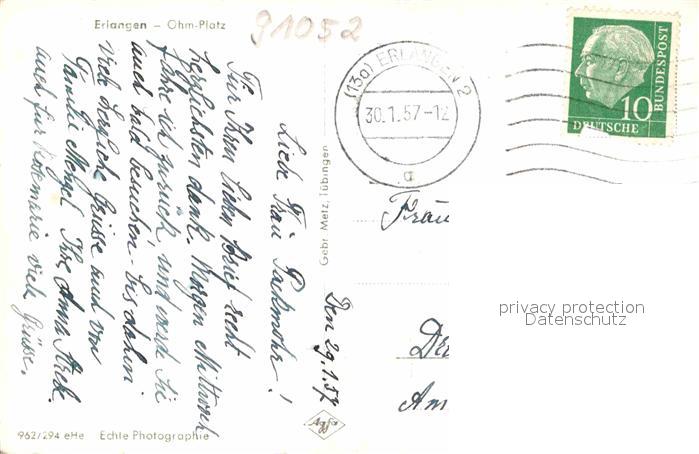 Erlangen – Ohm-Platz
91052
(13a) ERLANGEN 2
30.1.57-12
a
10
DEUTSCHE
BUNDESPOST
Den 29.1.57
Liebe Frau
Für Ihren lieben Brief recht
herzlichsten Dank. Morgen Mittwoch
fahre ich zurück und werde Sie
auch bald besuchen. Bis dahin
viele herzliche Grüsse auch von
Familie Mengel Ihre Anna
auch für Rosemarie viele Grüsse.
Gebr. Metz, Tübingen
Frau
Agfa
962/294 eHe Echte Photographie
privacy protection
Datenschutz